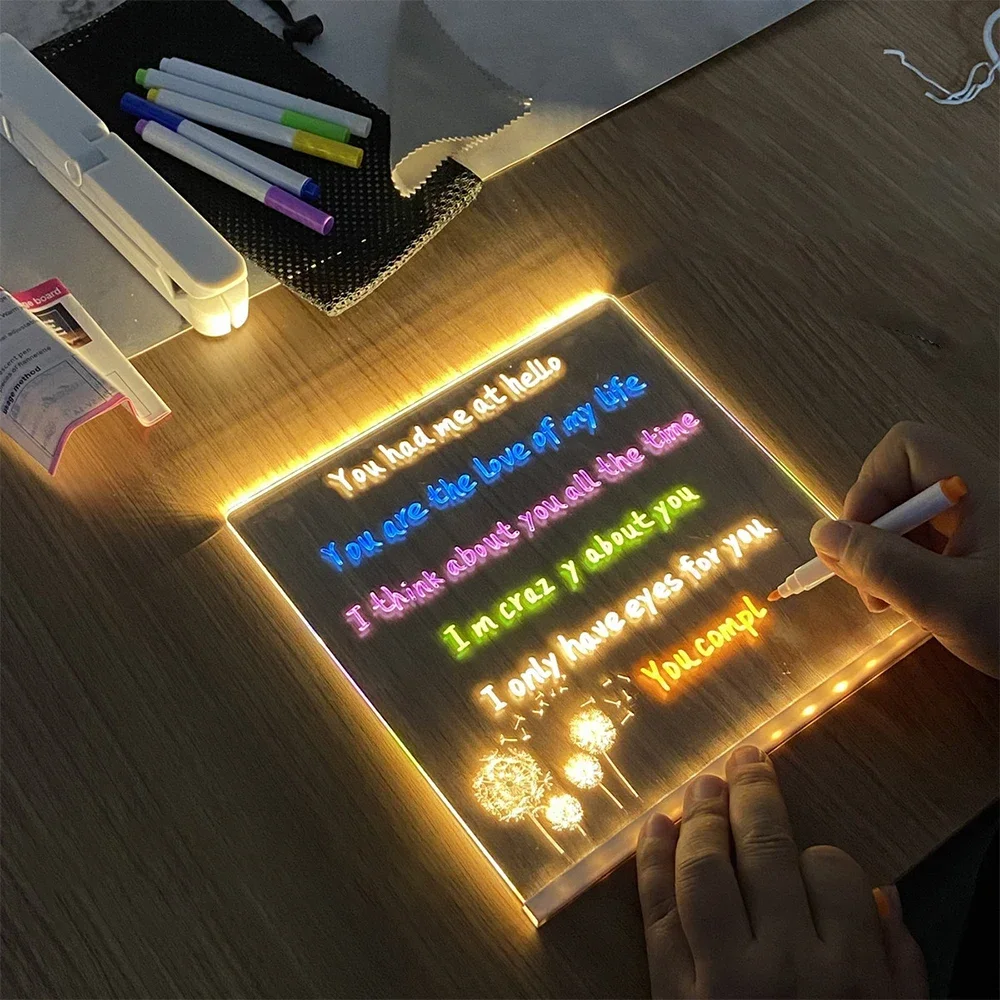 You had me at hello
You are the love of my life
I think about you all the time
I m craz y about you
I only have eyes for you
You compl
board
usage method